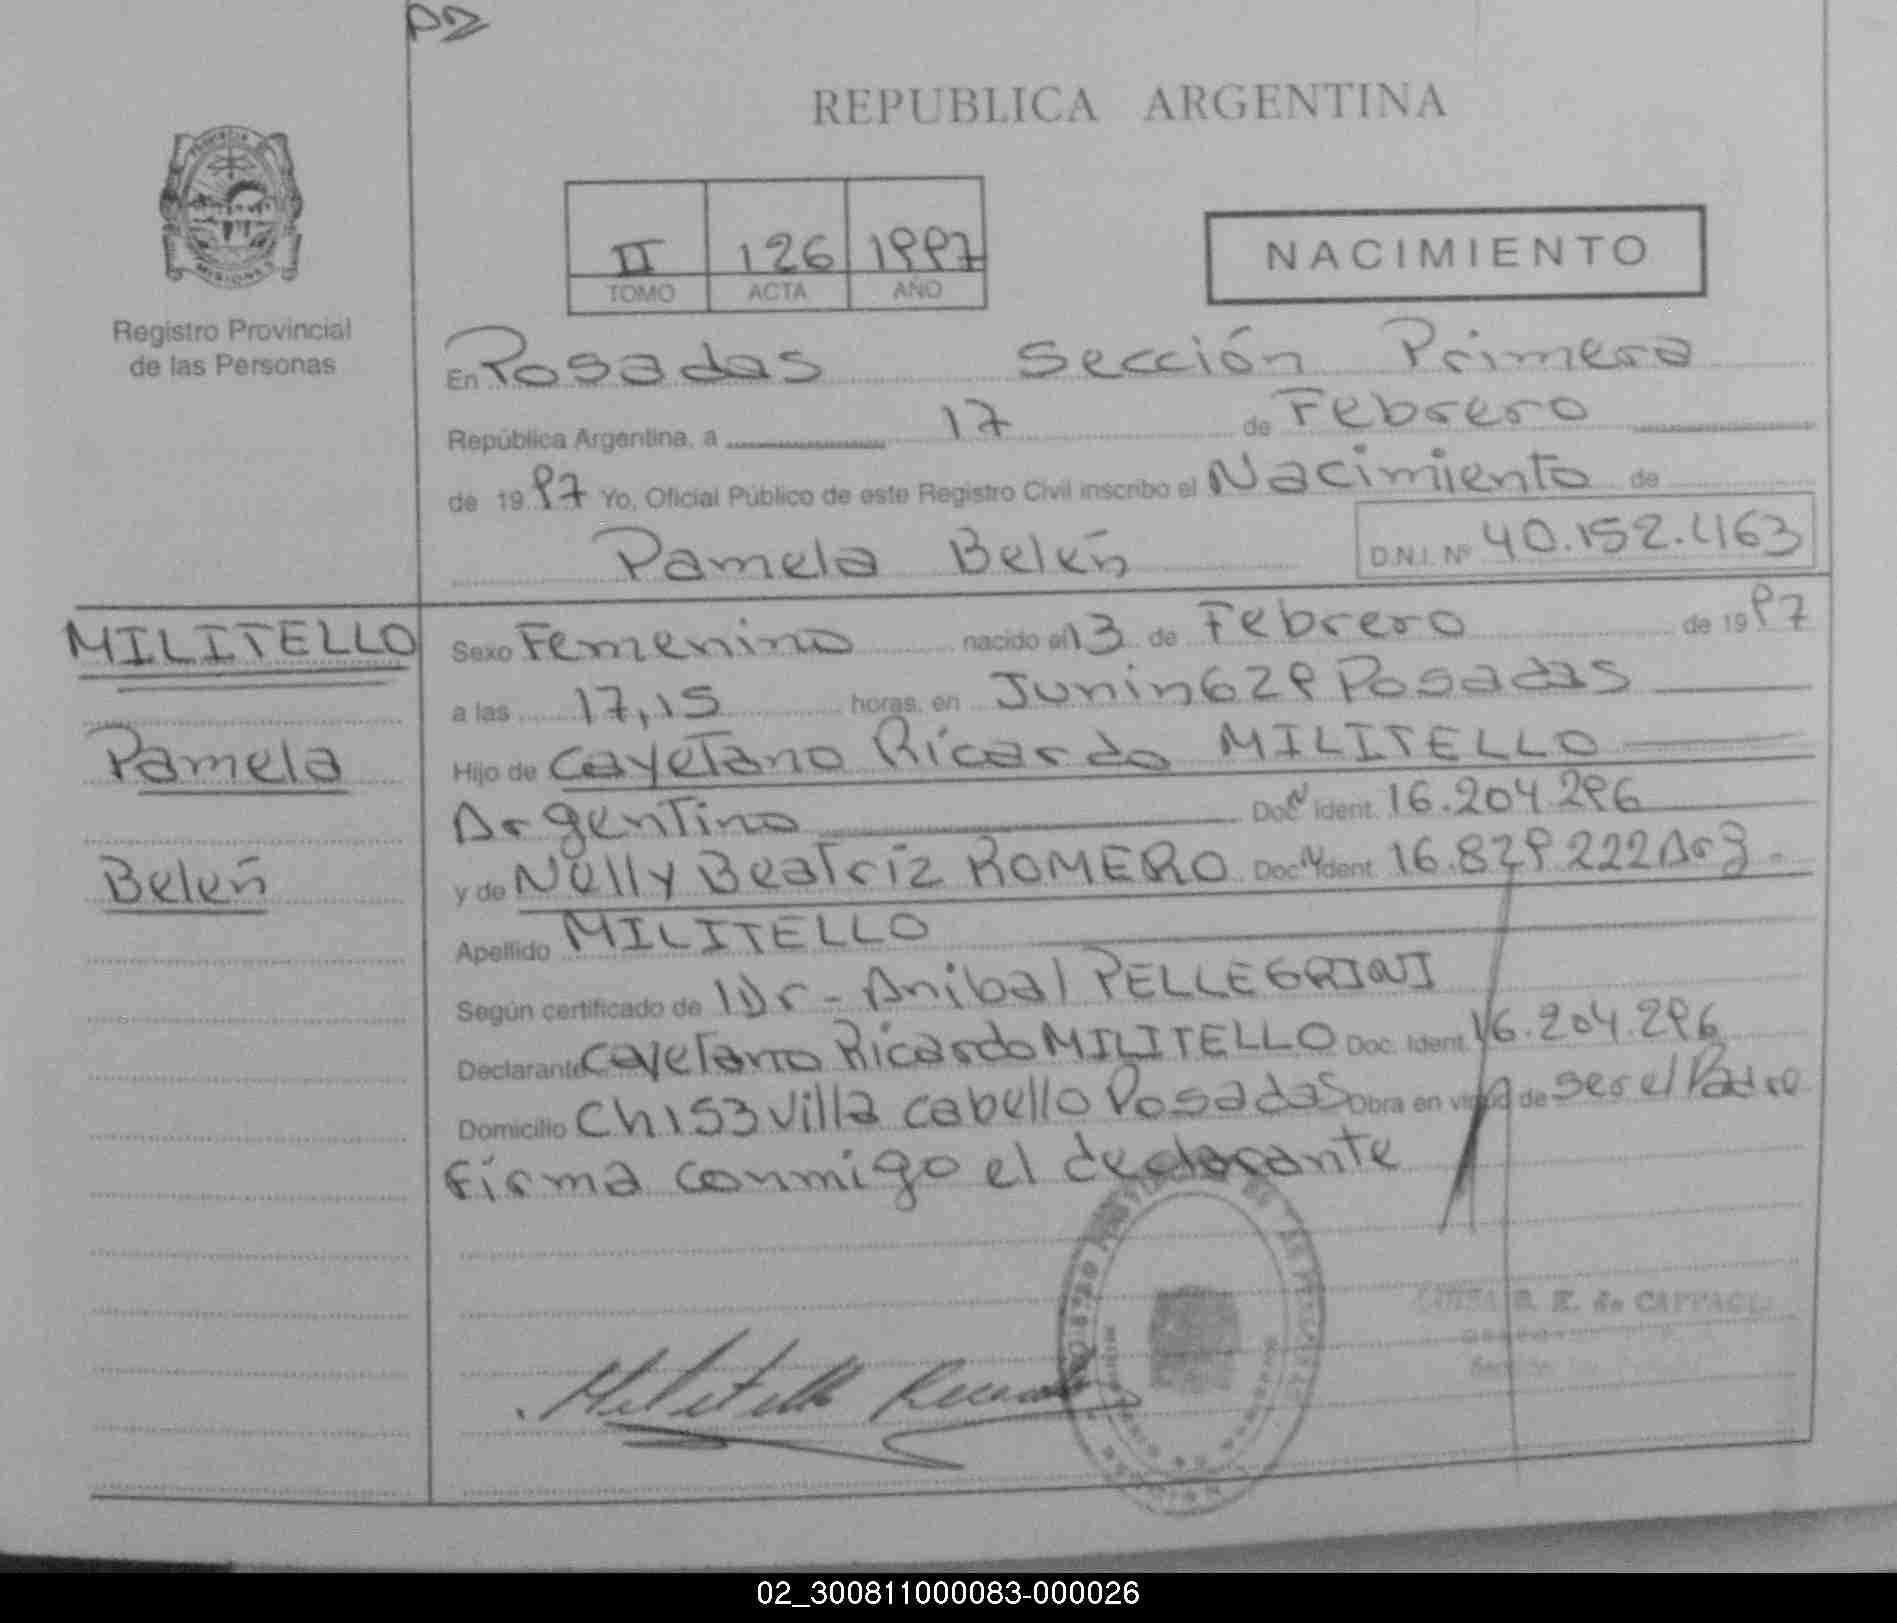 REPUBLICA ARGENTINA
PROVINCIA
MISIONES
Registro Provincial
de las Personas
II 126 1997
TOMO ACTA AÑO
NACIMIENTO
En Posadas Sección Primera
República Argentina, a 17 de Febrero
de 1997 Yo, Oficial Público de este Registro Civil inscribo el Nacimiento de
Pamela Belén D.N.I. Nº 40.152.463
MILITELLO
Pamela
Belén
Sexo Femenino nacido el 13 de Febrero de 1997
a las 17,15 horas, en Junin 629 Posadas
Hijo de Cayetano Ricardo MILITELLO
Argentino Doc. Ident. 16.204.296
y de Nelly Beatriz ROMERO Doc. Ident. 16.829.222 Arg.
Apellido MILITELLO
Según certificado de Dr. Anibal PELLEGRINI
Declarante Cayetano Ricardo MILITELLO Doc. Ident. 16.204.296
Domicilio Ch 153 Villa Cabello Posadas Obra en virtud de ser el Padre
Firma conmigo el declarante
Militello Ricardo
02_300811000083-000026